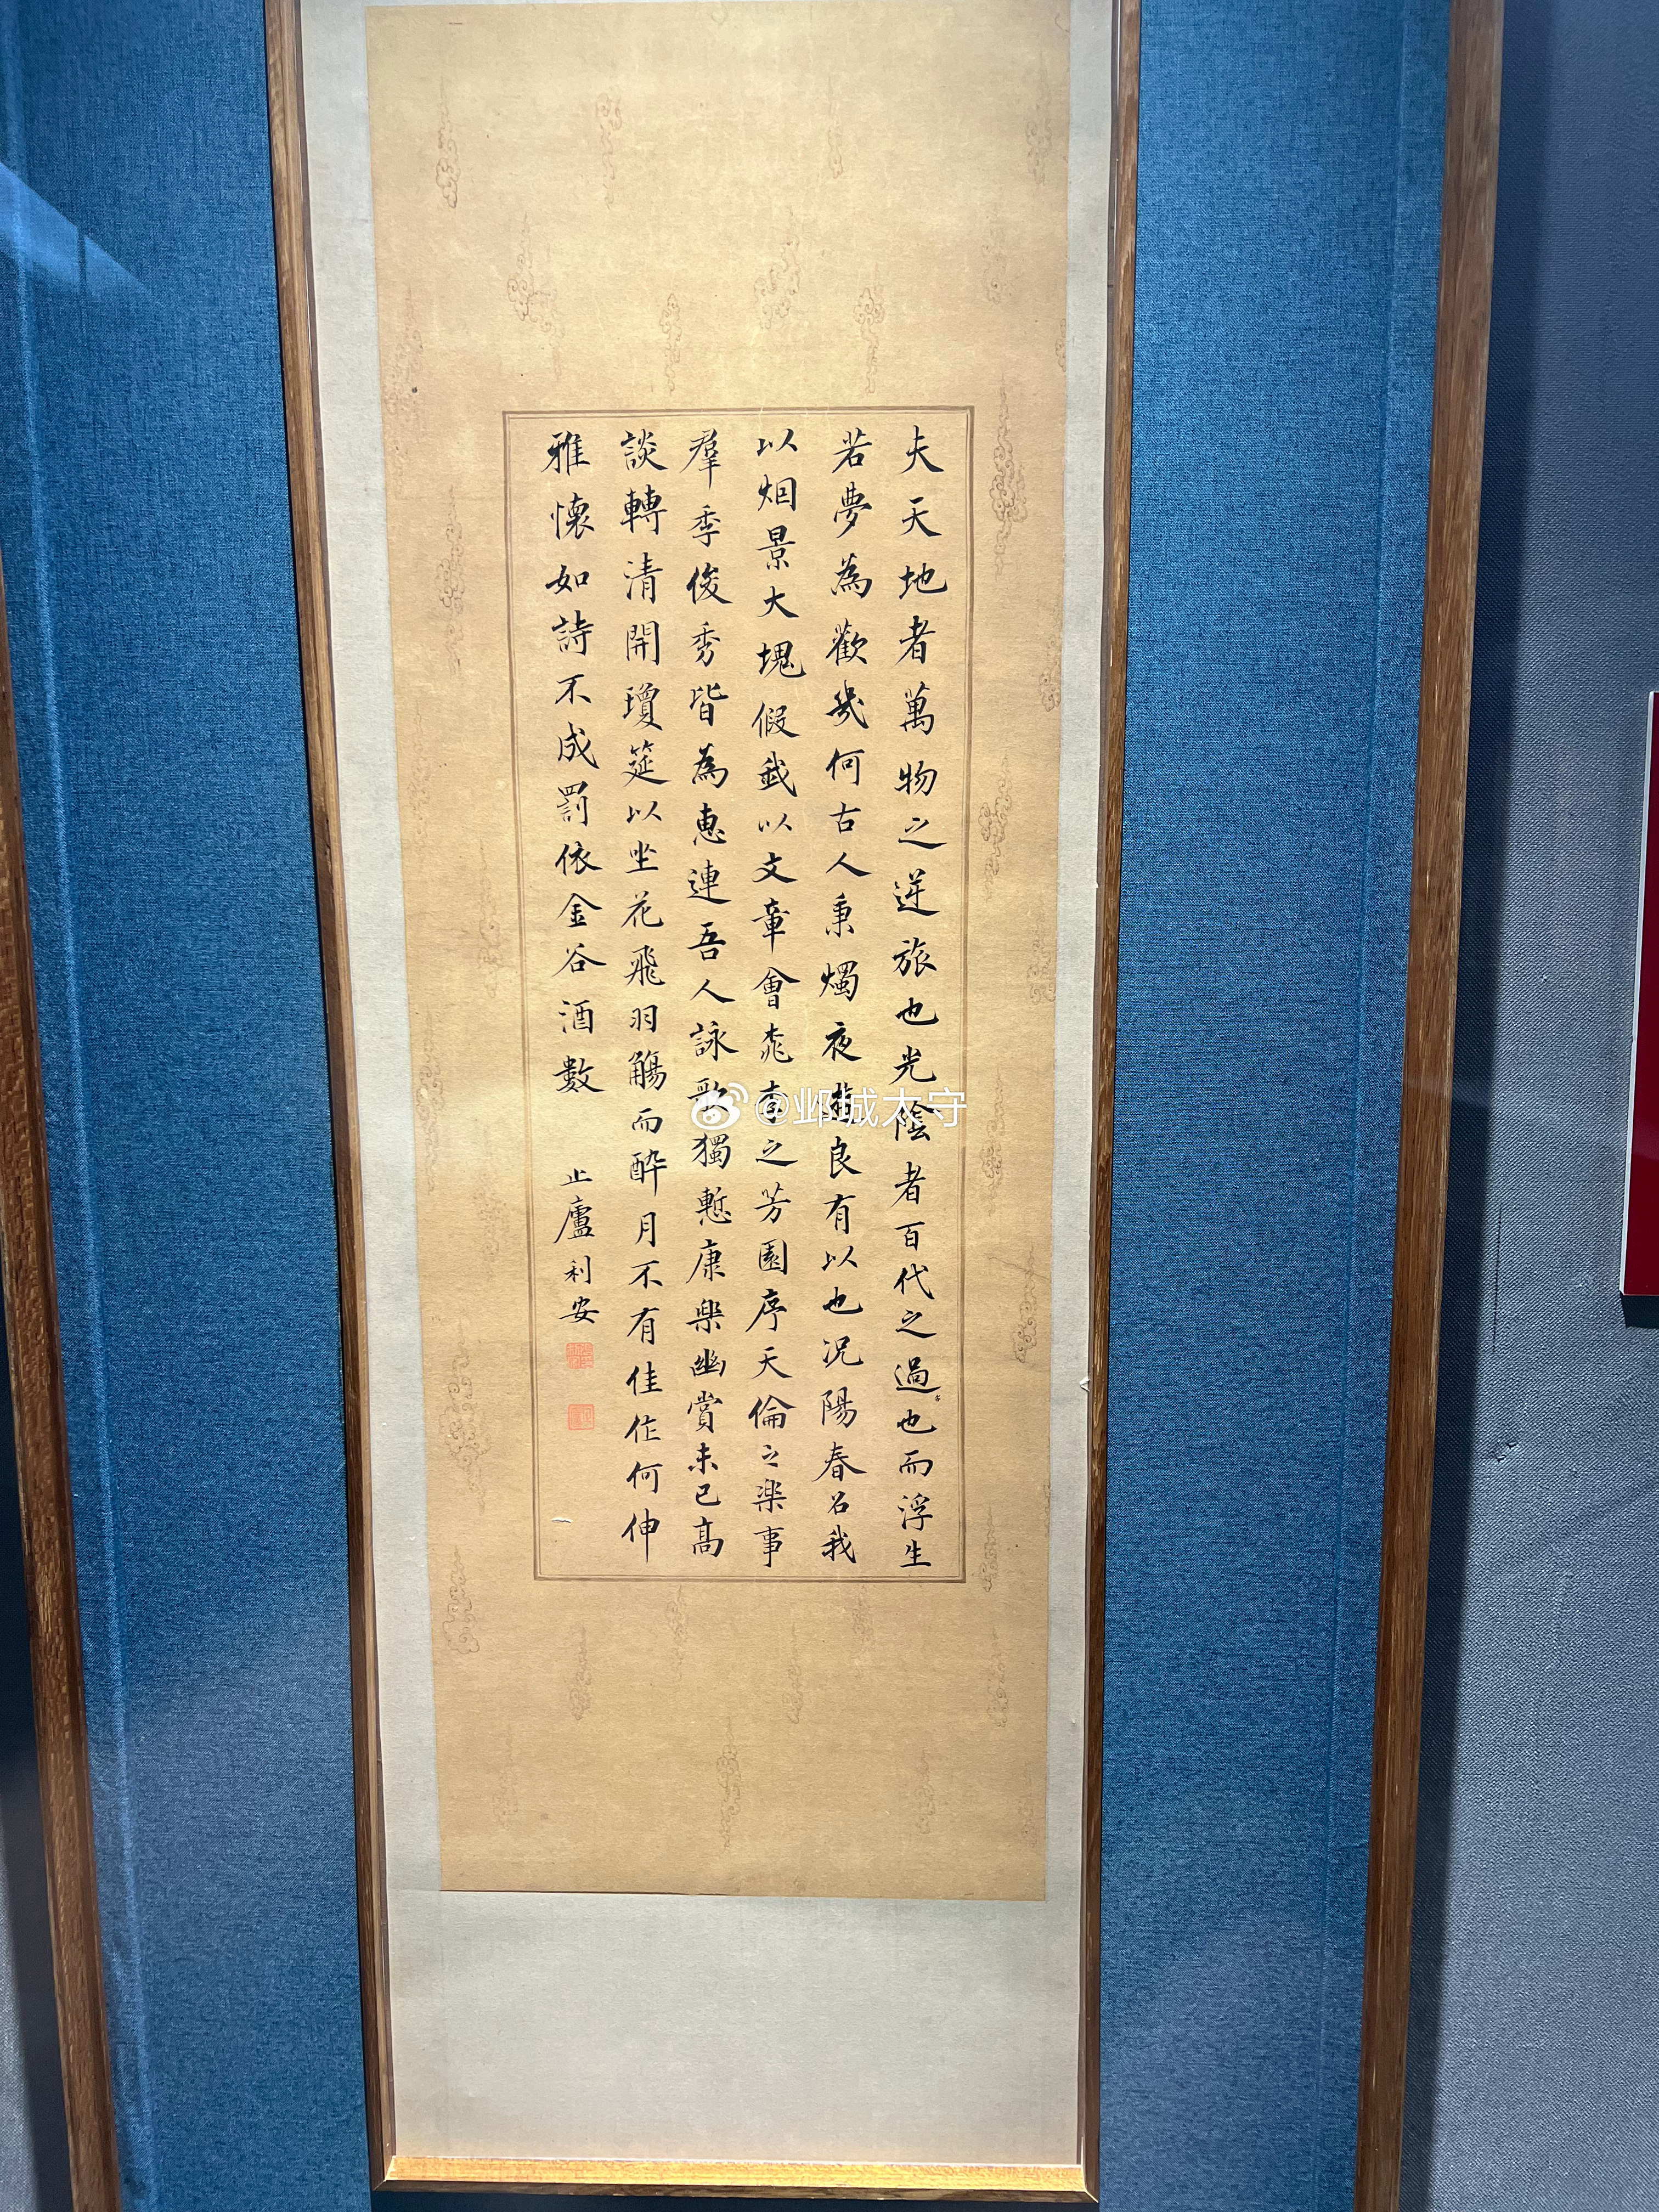 夫天地者萬物之逆旅也光陰者百代之過也而浮生
若夢為歡幾何古人秉燭夜遊良有以也況陽春召我
以烟景大塊假我以文章會桃李之芳園序天倫之樂事
羣季俊秀皆為惠連吾人詠歌獨慙康樂幽賞未已高
談轉清開瓊筵以坐花飛羽觴而醉月不有佳作何伸
雅懷如詩不成罰依金谷酒數
止廬利安
@邺城太守